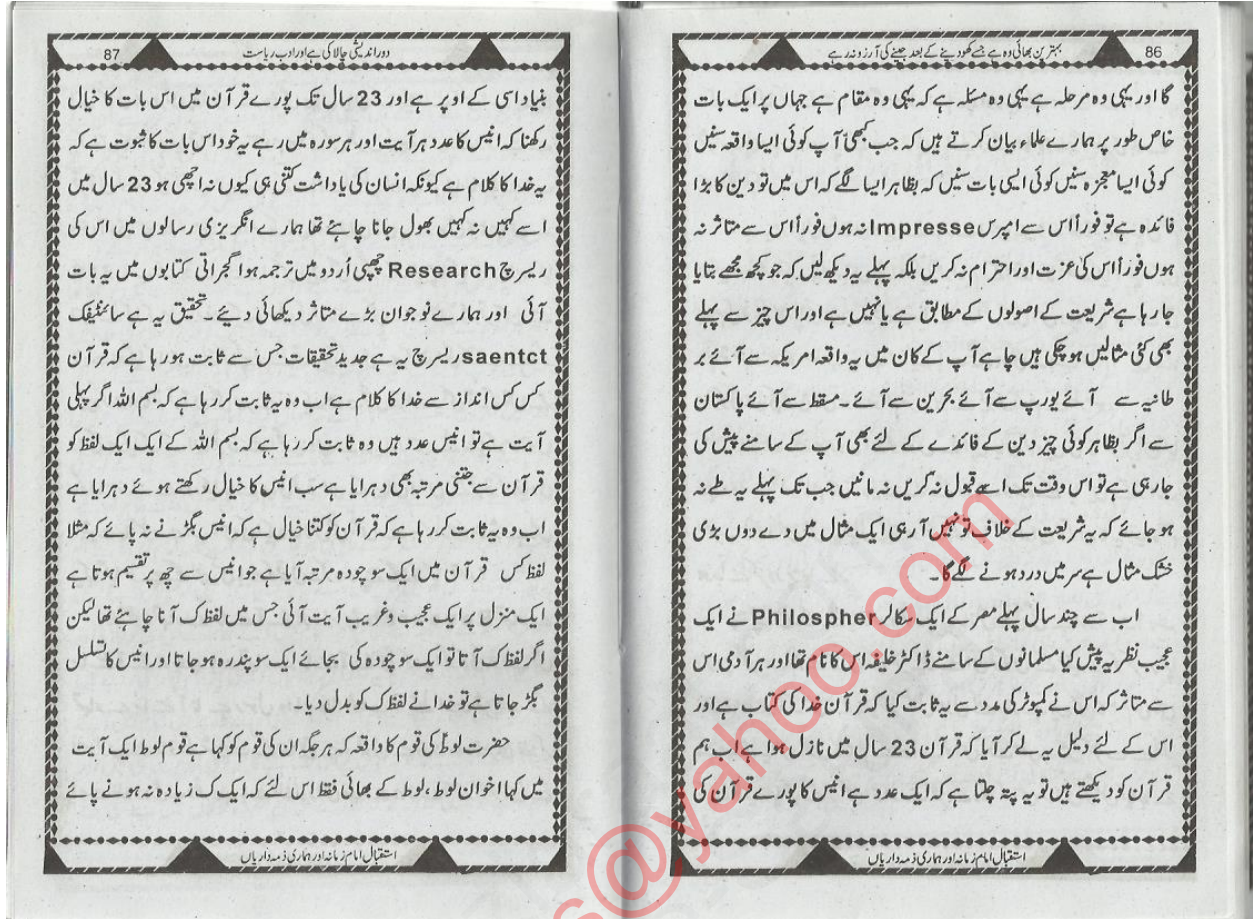 86
بہترین بھائی وہ ہے جسے کھو دینے کے بعد جینے کی آرزو نہ رہے
گا اور یہی وہ مرحلہ ہے یہی وہ مسئلہ ہے کہ یہی وہ مقام ہے جہاں پر ایک بات
خاص طور پر ہمارے علماء بیان کرتے ہیں کہ جب کبھی آپ کوئی ایسا واقعہ سنیں
کوئی ایسا معجزہ سنیں کوئی ایسی بات سنیں کہ بظاہر ایسا لگے کہ اس میں تو دین کا بڑا
فائدہ ہے تو فوراً اس سے امپرس Impresse نہ ہوں فوراً اس سے متاثر نہ
ہوں فوراً اس کی عزت اور احترام نہ کریں بلکہ پہلے یہ دیکھ لیں کہ جو کچھ مجھے بتایا
جا رہا ہے شریعت کے اصولوں کے مطابق ہے یا نہیں ہے اور اس چیز سے پہلے
بھی کئی مثالیں ہو چکی ہیں چاہے آپ کے کان میں یہ واقعہ امریکہ سے آئے بر
طانیہ سے آئے یورپ سے آئے بحرین سے آئے۔ مسقط سے آئے پاکستان
سے اگر بظاہر کوئی چیز دین کے فائدے کے لئے بھی آپ کے سامنے پیش کی
جا رہی ہے تو اس وقت تک اسے قبول نہ کریں نہ مانیں جب تک پہلے یہ طے نہ
ہو جائے کہ یہ شریعت کے خلاف تو نہیں آ رہی ایک مثال میں دے دوں بڑی
خشک مثال ہے سر میں درد ہونے لگے گا۔
اب سے چند سال پہلے مصر کے ایک سکالر Philospher نے ایک
عجیب نظریہ پیش کیا مسلمانوں کے سامنے ڈاکٹر خلیفہ اس کا نام تھا اور ہر آدمی اس
سے متاثر کہ اس نے کمپوٹر کی مدد سے یہ ثابت کیا کہ قرآن خدا کی کتاب ہے اور
اس کے لئے دلیل یہ لے کر آیا کہ قرآن 23 سال میں نازل ہوا ہے اب ہم
قرآن کو دیکھتے ہیں تو یہ پتہ چلتا ہے کہ ایک عدد ہے انیس کا پورے قرآن کی
استقبال امام زمانہ اور ہماری ذمہ داریاں
87
دور اندیشی چالاکی ہے اور ادب ریاست
بنیاد اسی کے اوپر ہے اور 23 سال تک پورے قرآن میں اس بات کا خیال
رکھنا کہ انیس کا عدد ہر آیت اور ہر سورہ میں رہے یہ خود اس بات کا ثبوت ہے کہ
یہ خدا کا کلام ہے کیونکہ انسان کی یاداشت کتنی ہی کیوں نہ اچھی ہو 23 سال میں
اسے کہیں نہ کہیں بھول جانا چاہئے تھا ہمارے انگریزی رسالوں میں اس کی
ریسرچ Research چھپی اُردو میں ترجمہ ہوا گجراتی کتابوں میں یہ بات
آئی اور ہمارے نوجوان بڑے متاثر دیکھائی دیے۔ تحقیق یہ ہے سائنٹیفک
saentct ریسرچ یہ ہے جدید تحقیقات جس سے ثابت ہو رہا ہے کہ قرآن
کس کس انداز سے خدا کا کلام ہے اب وہ یہ ثابت کر رہا ہے کہ بسم اللہ اگر پہلی
آیت ہے تو انیس عدد ہیں وہ ثابت کر رہا ہے کہ بسم اللہ کے ایک ایک لفظ کو
قرآن سے جتنی مرتبہ بھی دہرایا ہے سب انیس کا خیال رکھتے ہوئے دہرایا ہے
اب وہ یہ ثابت کر رہا ہے کہ قرآن کو کتنا خیال ہے کہ انیس بگڑنے نہ پائے کہ مثلا
لفظ کس قرآن میں ایک سو چودہ مرتبہ آیا ہے جو انیس سے چھ پر تقسیم ہوتا ہے
ایک منزل پر ایک عجیب و غریب آیت آئی جس میں لفظ ک آنا چاہئے تھا لیکن
اگر لفظ ک آتا تو ایک سو چودہ کی بجائے ایک سو پندرہ ہو جاتا اور انیس کا تسلسل
بگڑ جاتا ہے تو خدا نے لفظ ک کو بدل دیا۔
حضرت لوطؑ کی قوم کا واقعہ کہ ہر جگہ ان کی قوم کو کہا ہے قوم لوط ایک آیت
میں کہا اخوان لوط، لوط کے بھائی فقط اس لئے کہ ایک ک زیادہ نہ ہونے پائے
استقبال امام زمانہ اور ہماری ذمہ داریاں
s@yahoo.com